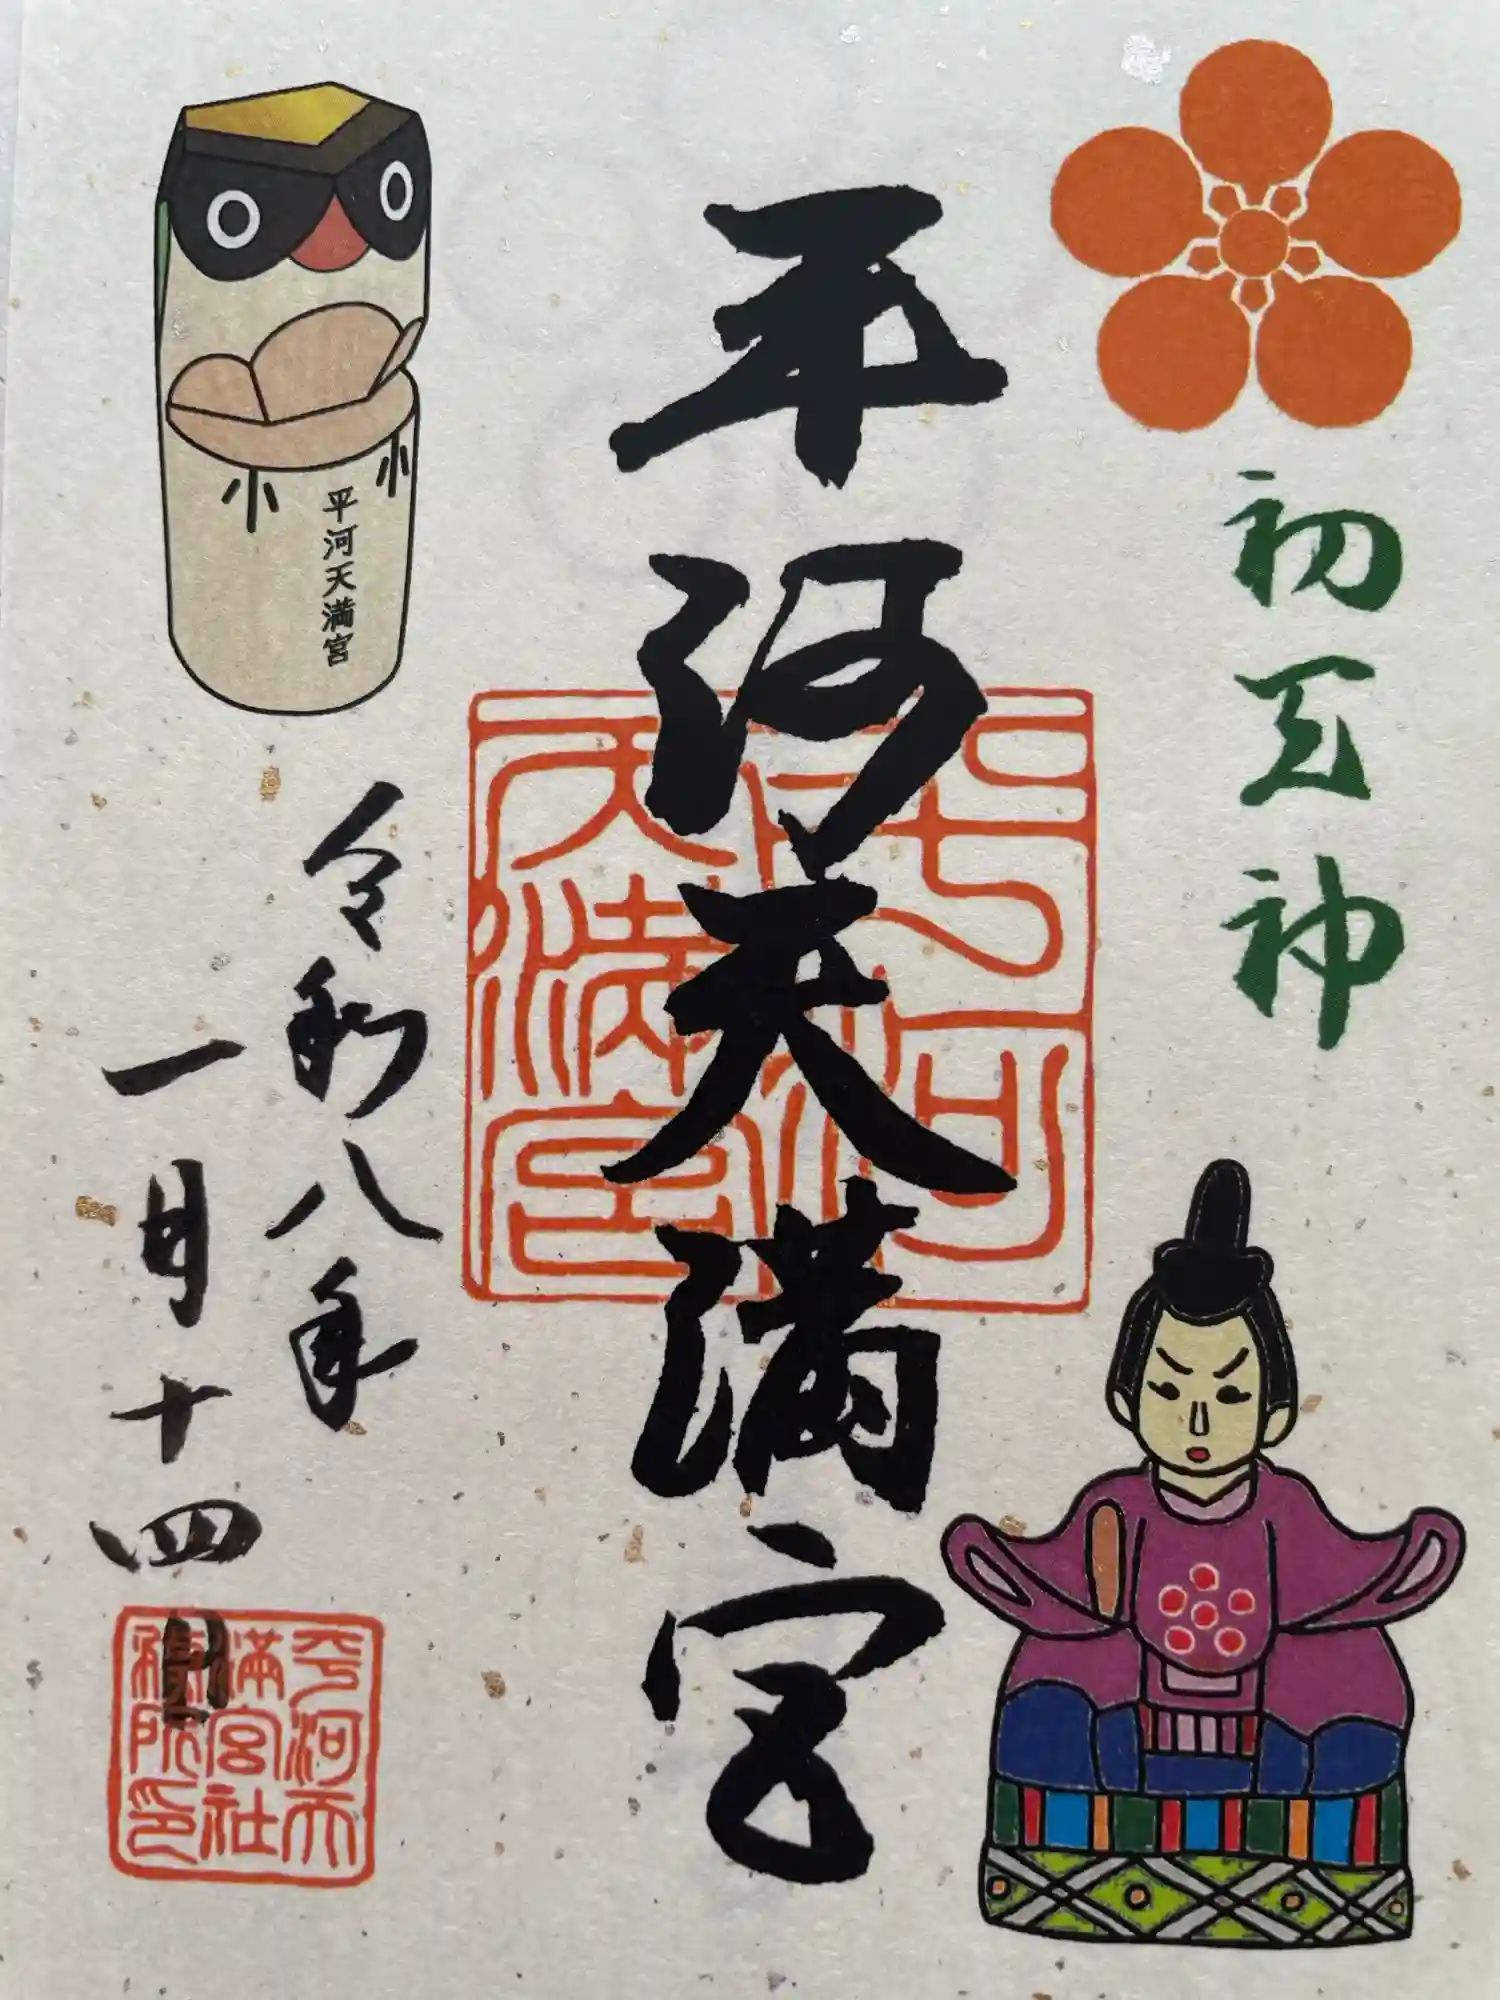 初天神
平河天満宮
平河天満宮
平河天満宮
令和八年
一月十四日
平河天
満宮社
務所印